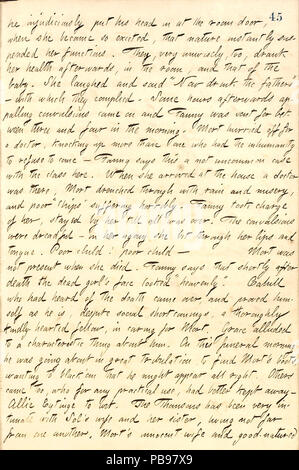 45
he injudiciously put his head in at the room door,
when she became so excited, that nature instantly sus-
pended her functions. They, very unwisely too, drank
her health afterwards, in the room, and that of the
baby. She laughed and said "Now drink the father's"
— with which they complied. Some hours afterwards ap-
palling convulsions came on and Fanny was sent for bet-
ween three and four in the morning. Mort hurried off for
a doctor, knocking up more than one who had the inhumanity
to refuse to come — Fanny says this a not uncommon case
with the class here. When she arrived at the house a doctor
was there; Mort drenched through with rain and misery,
and poor Ships suffering horribly. Fanny took charge
of her, stayed by her till all was over. The convulsions
were dreadful — in her agony she bit through her lips and
tongue. Poor child! poor child — Mort was
not present when she died. Fanny says that shortly after
death the dead girl's face looked heavenly! Cahill
who had heard of the death came over and proved him-
self as he is, despite social shortcomings, a thoroughly
kindly hearted fellow, in caring for Mort. Grace alluded
to a characteristic thing about him. On the funeral morning
he was going about in great tribulation to find Mort's boots,
wanting to black em that he might appear all right. Others
came too, who for any practical use, had better kept away —
Allie Eytinge to wit. The Thomsons has been very in-
timate with Sol's wife and her sister, living not far
from one another. Mort's innocent wife and good-natured
alamy
Image ID: PB97X9
www.alamy.com